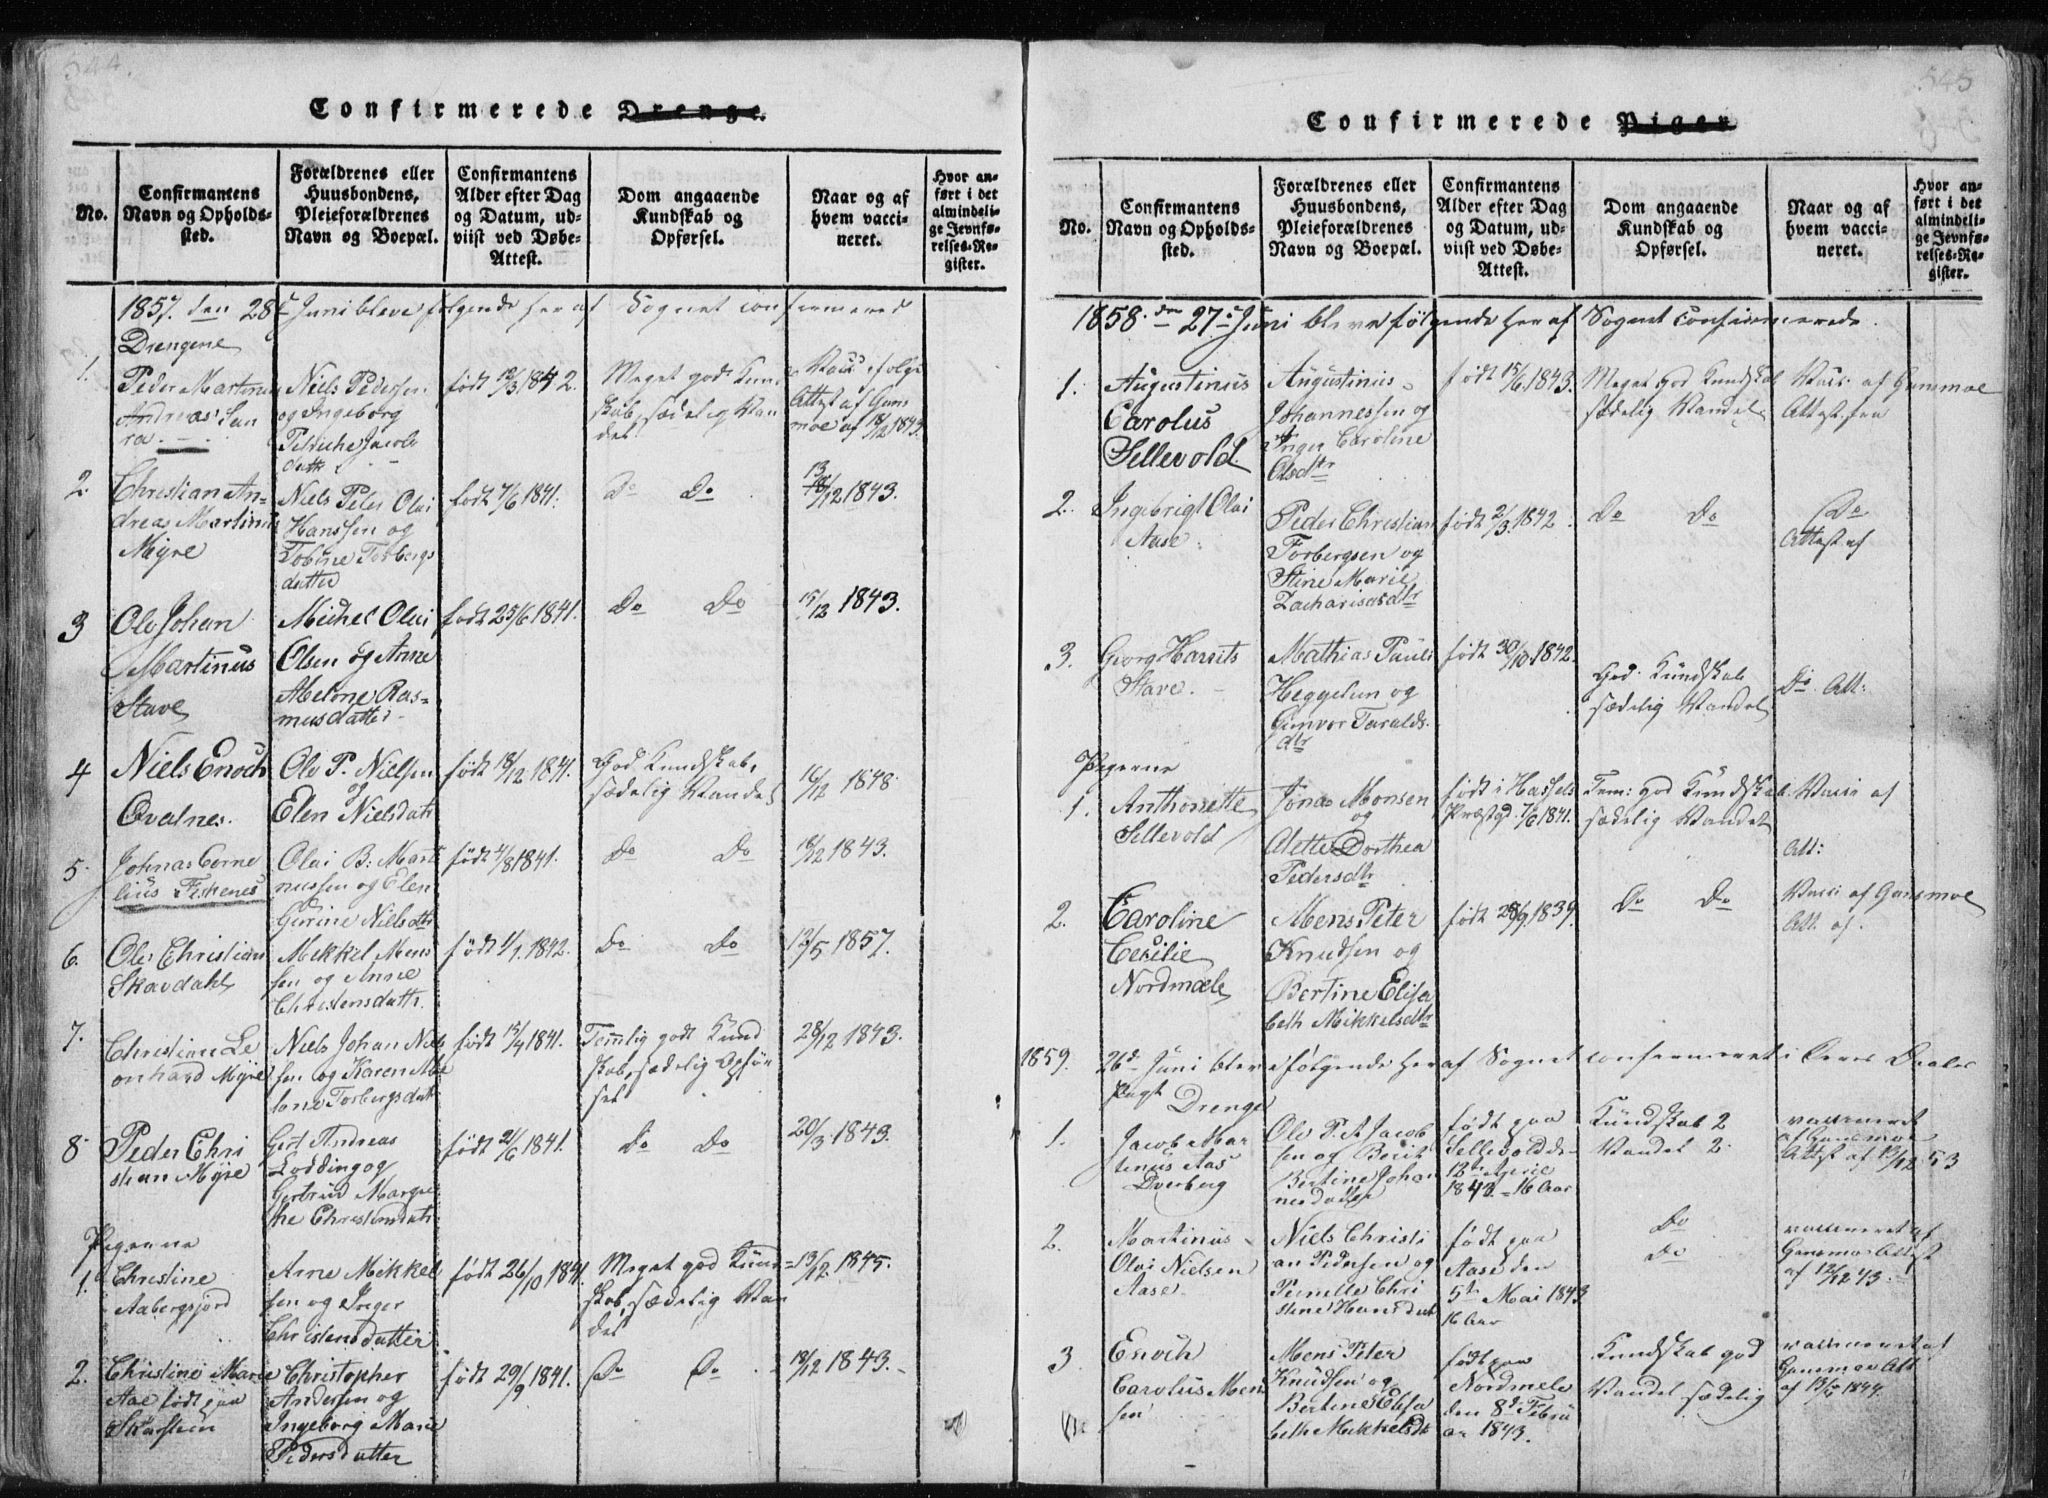 544.
Confirmerede Drenge.
No.
Confirmantens
Navn og Opholds-
sted.
Forældrenes eller
Huusbondens,
Pleieforældrenes
Navn og Boepæl.
Confirmantens
Alder efter Dag
og Datum, ud-
viist ved Døbe-
Attest.
Dom angaaende
Kundskab og
Opførsel.
Naar og af
hvem vacci-
neret.
Hvor an-
ført i det
almindeli-
ge Jevnfø-
relses-Re-
gister.
1857. den 28de Juni bleve følgende her af Sognet confirmered
Drengene
1.
Peder Martinus
Andreas
Niels Pedersen
og Ingeborg
Petriche Jacobs
datter
født 12/3 1842.
Meget godt Kund
skab, sædelig Van
del
Vacc. ifølge
Attest af Gans
moe af 12/12 1843.
2.
Christian An-
dreas Martinus
Myre
Niels Peter Olai
Hanssen og
Tobine Torbergs
datter
født 7/6 1841.
Do Do
13/12 1843.
3
Ole Johan
Martinus
Stave
Michel Olai
Olsen og Anne
Melone Ras-
musdatter
født 25/6 1841.
Do Do
15/12 1843.
4
Niels Enoch
Qvalnes.
Ole P. Nielsen
og
Elen Nielsdatr
født 18/12 1841.
God Kundskab,
sædelig Vandel
16/12 1848.
5.
Johnas Corne
lius Fiskenes
Olai B. Marti
nussen og Elen
Gurine Nielsdtr
født 4/8 1841.
Do Do
18/12 1843.
6.
Ole Christian
Skavdahl
Mikkel Mons
sen og Anne
Christensdattr.
født 1/1 1842.
Do Do
12/5 1857.
7.
Christian Le
onhard Myre
Niels Johan Niels
sen og Karen Abe
lone Torbergsdatr
født 15/4 1841.
Temlig godt Kund
skab, sædelig Opfør
sel
28/12 1843.
8
Peder Chri
stian Myre
Gert Andreas
Lodding og
Gertrud Margre
the Christensdatr
født 21/6 1841.
Do Do
20/3 1843.
Pigerne
1.
Christine
Aabergsjord
Arne Mikkel
sen og Inger
Christensdatter
født 26/10 1841.
Meget god Kund-
skab, sædelig Van
del
13/12 1845.
2.
Christine Marie
Aae født paa
Skarstein
Christopher
Andersen og
Ingeborg Marie
Pedersdatter
født 29/9 1841.
Do Do
18/12 1843.
545
Confirmerede Piger
No.
Confirmantens
Navn og Opholds-
sted.
Forældrenes eller
Huusbondens,
Pleieforældrenes
Navn og Boepæl.
Confirmantens
Alder efter Dag
og Datum, ud-
viist ved Døbe-
Attest.
Dom angaaende
Kundskab og
Opførsel.
Naar og af
hvem vacci-
neret.
Hvor an-
ført i det
almindeli-
ge Jevnfø-
relses-Re-
gister.
1858. den 27de Juni bleve følgende her af Sognet confirmerede.
1.
Augustinus
Carolus
Sellevold.
Augustinus
Johannessen og
Inger Caroline
Olsdtr
født 15/6 1843.
Meget god Kundskab
sædelig Vandel
Vacc: af Gansmoe
Attest fra
2.
Ingebrigt Olai
Aase
Peder Christian
Torbergsen og
Stine Marie
Zachariasdtr
født 2/3 1842.
Do Do
Do
Attest af
3.
Georg Harrits
Stave.
Mathias Pauli
Heggelun og
Gunvor Taralds.
dtr
født 30/10 1842.
God Kundskab
sædelig Vandel
Do. Att:
Pigerne
1.
Anthonette
Sellevold
Jonas Monsen
og
Alette Dorthea
Pedersdtr
født i Hassels
Præstgd. 7/6 1841.
Tem: god Kundskab
sædelig Vandel
Vacc: af
Att:
2.
Caroline
Cecilie
Nordmæle
Mens Peter
Knudsen og
Bertine Elisa
beth Mikkelsdtr
født 28/9 1839.
Do Do
Vacc: af Gansmoe
Att. af.
1859. 26de Juni blev følgende her af Sognet confirmeret i deres Daabs
Pagt
Drenge
1.
Jacob Mar
tinus Aas
Dverberg
Ole P. A. Jacob
sen og Berit
Bertine Johan
nesdatter
født paa
Sellevold d.
1843. 16 Aar
Kundskab 2
Vandel 2.
vaccineret
af Gansmoe
Attest af 13/12 53
2.
Martinus
Olai Nielsen
Aase
Niels Christi
an Pedersen og
Pernelle Chri
stine Hansdatr
født paa
Aase den
5te Mai 1843
16 Aar
Do
Do
vaccineret af
Gansmoe Attest
af 12/12 43.
3
Enoch
Carolus Men
sen
Mens Peter
Knudsen og
Bertine Elisa
beth Mikkelsdt
født paa
Nordmele
den 8de Febru
ar 1843.
Kundskab god
Vandel sædelig
vaccineret af
Gansmoe Att.